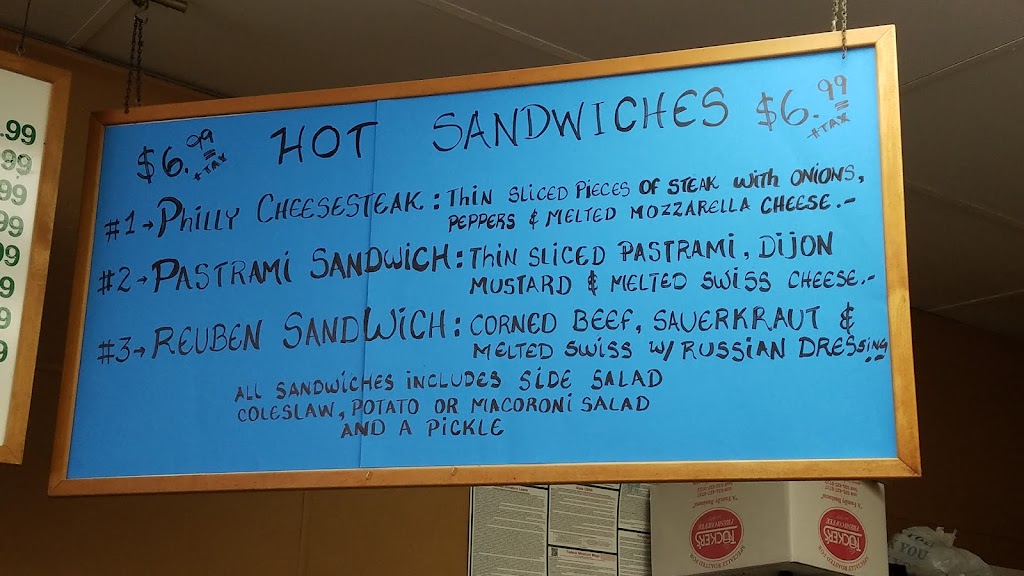 .99
.99
.99
.99
.99
9
9
9
$6.99 +TAX HOT SANDWICHES $6.99 +TAX
#1→PHILLY CHEESESTEAK: THIN SLICED PIECES OF STEAK WITH ONIONS,
PEPPERS & MELTED MOZZARELLA CHEESE.-
#2→PASTRAMI SANDWICH: THIN SLICED PASTRAMI, DIJON
MUSTARD & MELTED SWISS CHEESE.-
#3→REUBEN SANDWICH: CORNED BEEF, SAUERKRAUT &
MELTED SWISS W/ RUSSIAN DRESSING
ALL SANDWICHES INCLUDES SIDE SALAD
COLESLAW, POTATO OR MACORONI SALAD
AND A PICKLE
"A Family Business"
TOCKERS
FRESH COFFEE
SPECIALLY ROASTED FOR
TOCKERS
FRESH COFFEE
SPECIALLY ROASTED FOR
YOU